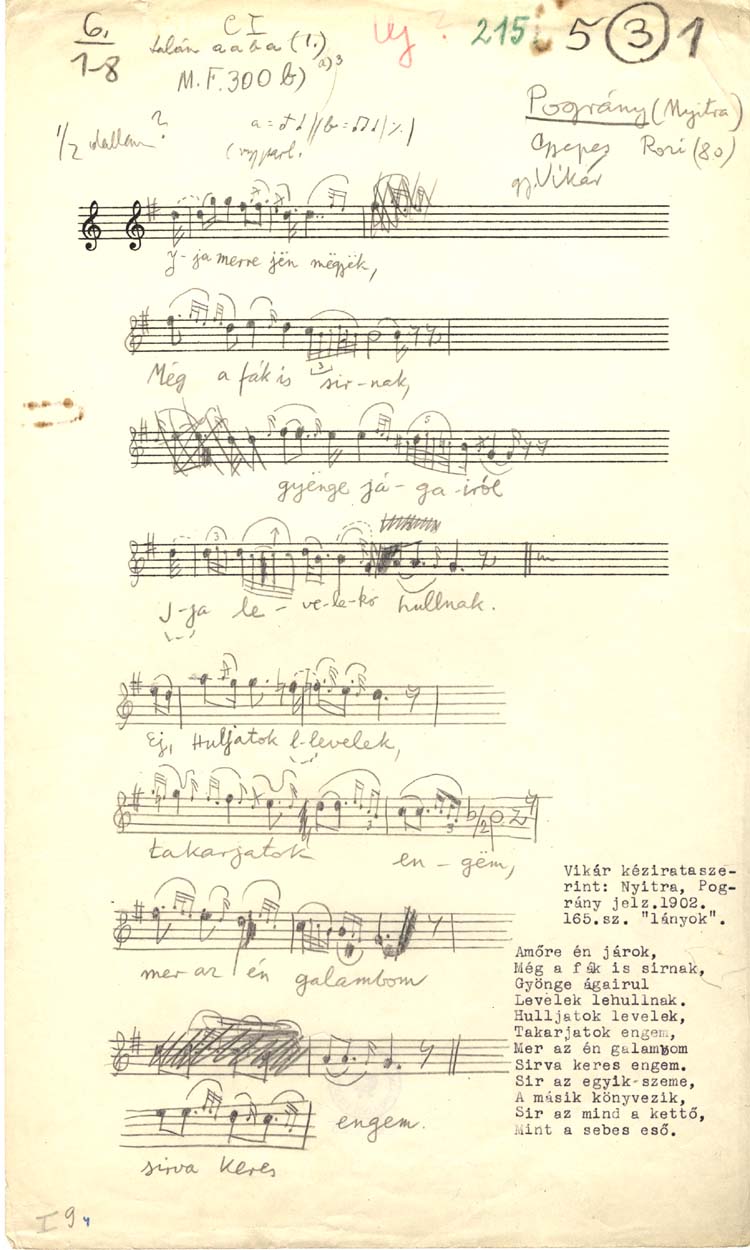 6.
1-8
C I
talán a a b a (1.)
M.F. 300 b) a) 3
uj ? 215 5 (3) 1
Pográny (Nyitra)
Czepes Rozi (80)
gy. Vikár
1/2 dallam?
J-ja merre jën mëgjëk,
Még a fák is sir-nak,
3
5
gyënge já-ga-iról
3
J-ja le-ve-le-kö hullnak.
Ej, Hulljatok l-levelek,
takarjatok en-gëm,
3 3
mer az én galambom
engem.
sirva keres
Vikár kéziratasze-
rint: Nyitra, Pog-
rány jelz.1902.
165.sz. "lányok".
Amőre én járok,
Még a fák is sirnak,
Gyönge ágairul
Levelek lehullnak.
Hulljatok levelek,
Takarjatok engem,
Mer az én galambom
Sirva keres engem.
Sir az egyik szeme,
A másik könyvezik,
Sir az mind a kettő,
Mint a sebes eső.
I 9 4